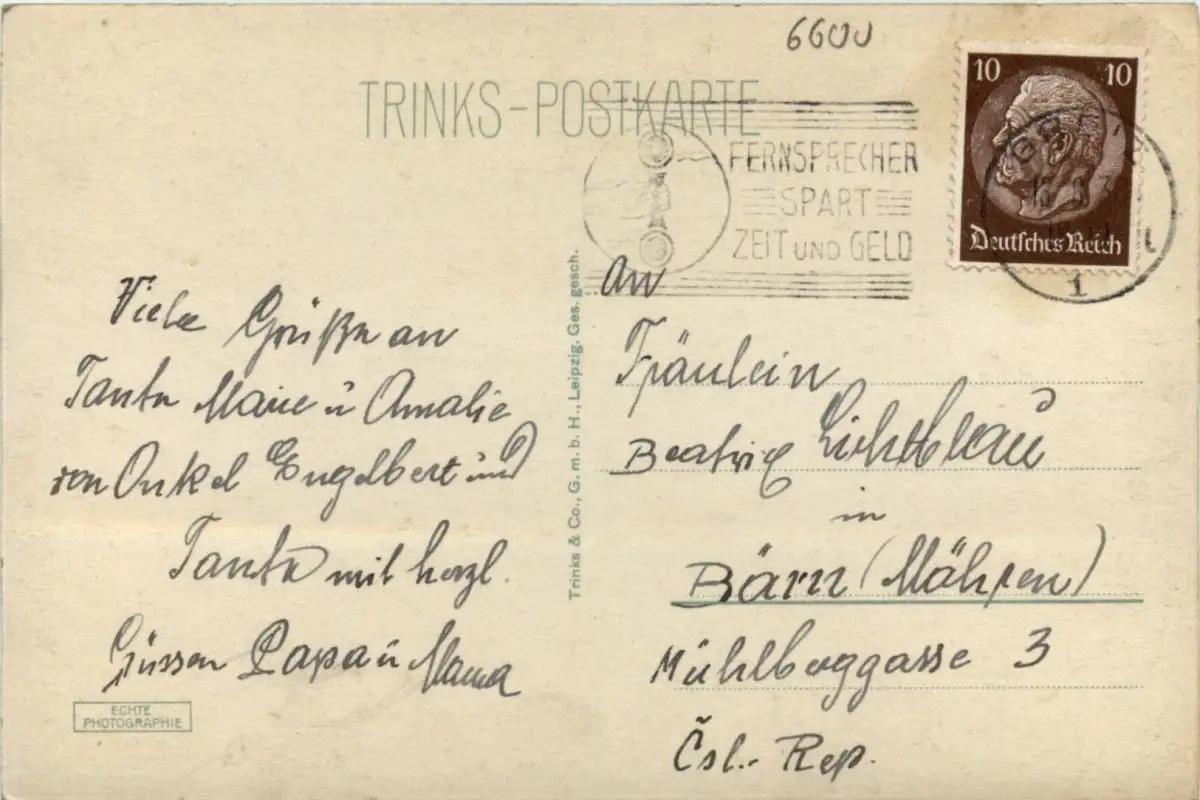 6600
TRINKS-POSTKARTE
FERNSPRECHER
SPART
ZEIT UND GELD
10 10
Deutsches Reich
1
Viele Grüße an
Tante Marie u Amalie
von Onkel Engelbert und
Tante mit herzl.
Grüssen Papa u Mama
ECHTE
PHOTOGRAPHIE
Trinks & Co., G. m. b. H., Leipzig. Ges. gesch.
An
Fräulein
Beatrix Lichtblau
in
Bärn (Mähren)
Mühlberggasse 3
Čsl.- Rep.